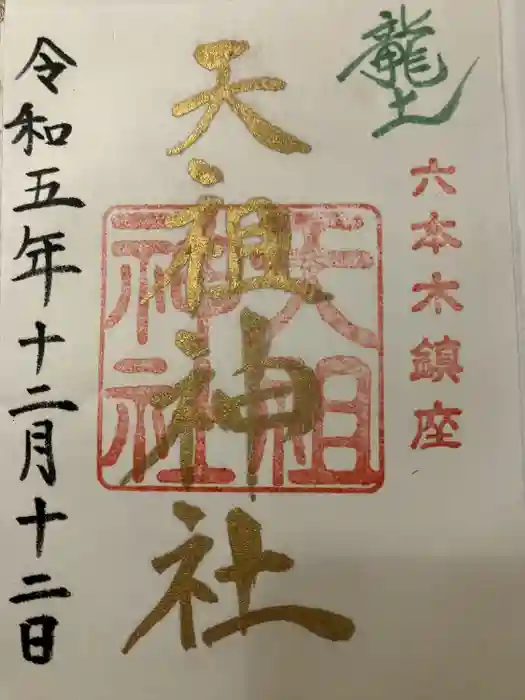 龍土
六本木鎮座
天祖神社
天祖
神社
令和五年十二月十二日